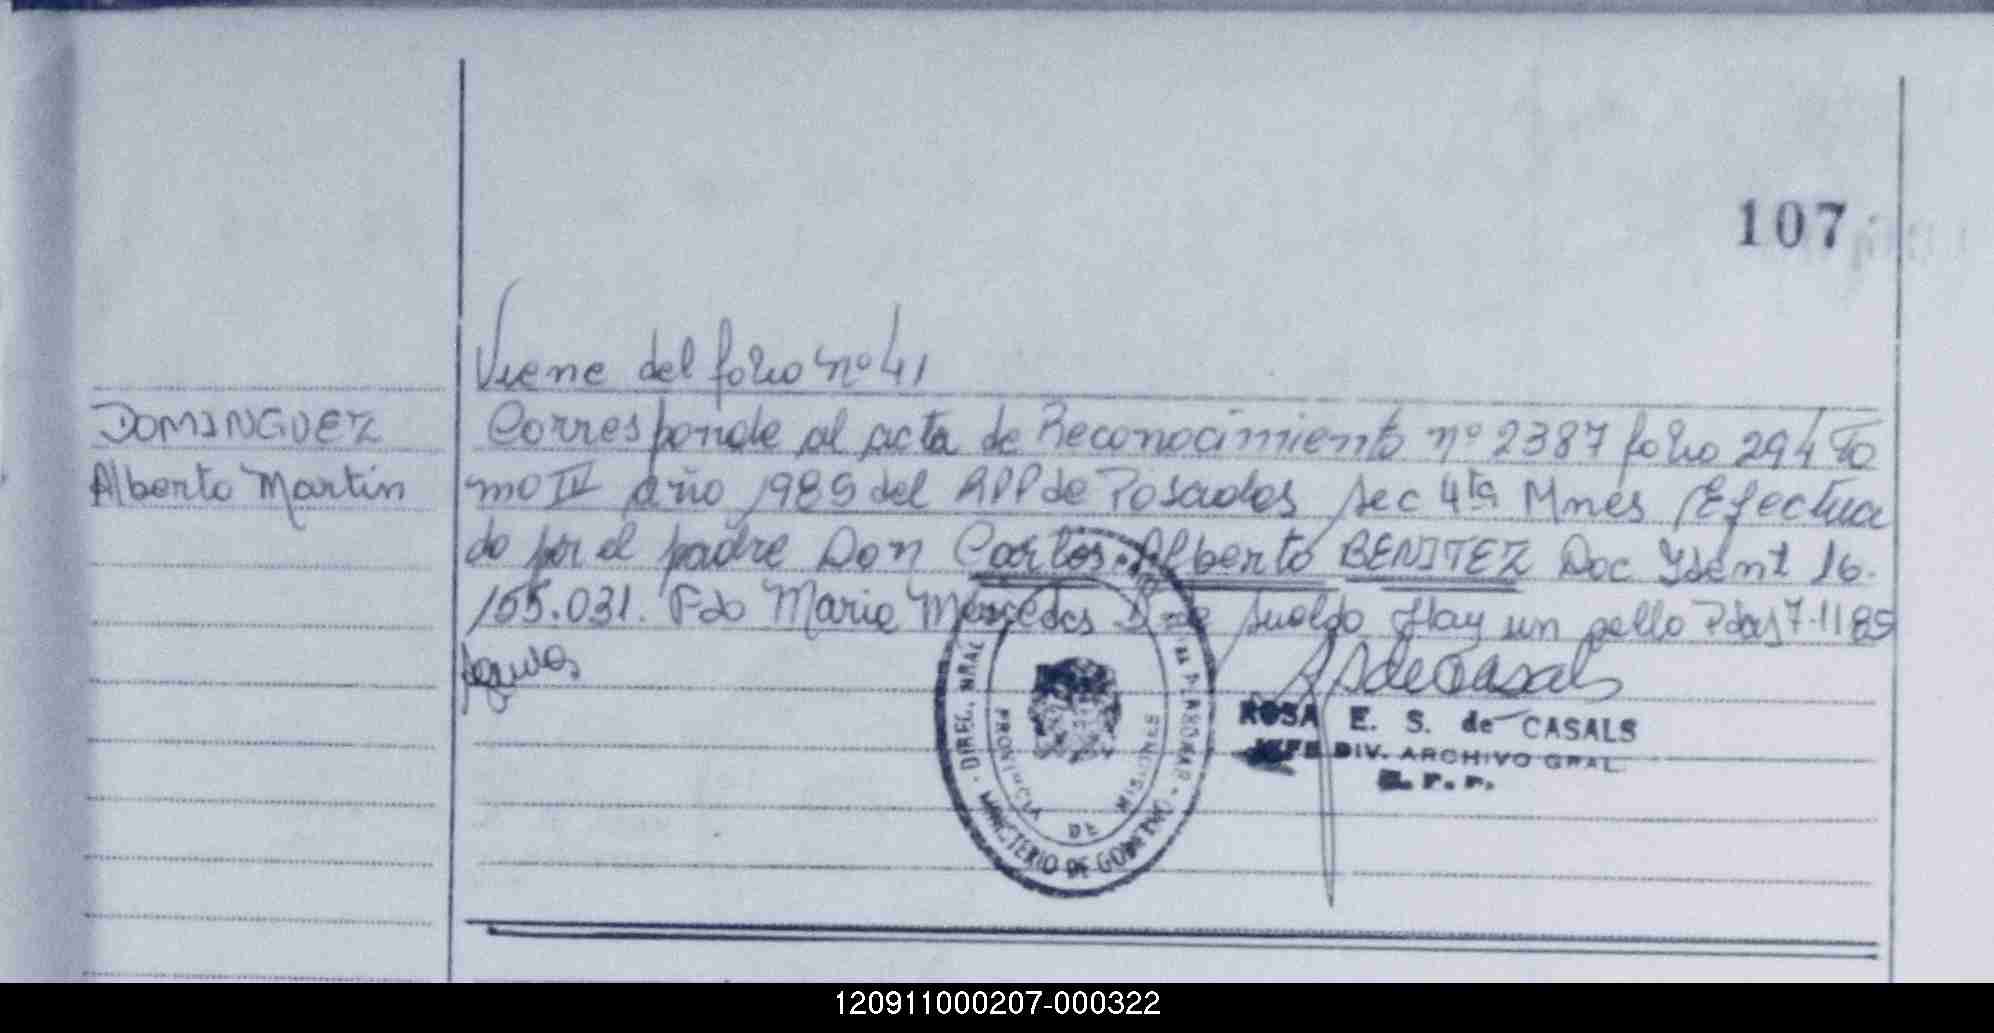 107
Viene del folio nº 41
DOMINGUEZ
Alberto Martin
Corresponde al acta de Reconocimiento nº 2387 folio 294 To
mo IV año 1989 del RPP de Posadas Sec 4ta Mnes Efectua
do por el padre Don Carlos Alberto BENITEZ Doc Ident 16.
155.031. Fdo Maria Mercedes D de Sueldo Hay un sello Pdas 7-11 89
ROSA E. S. de CASALS
JEFE DIV. ARCHIVO GRAL.
R. P. P.
DIREC. GRAL
PROVINCIA DE MISIONES
MINISTERIO DE GOBIERNO
120911000207-000322